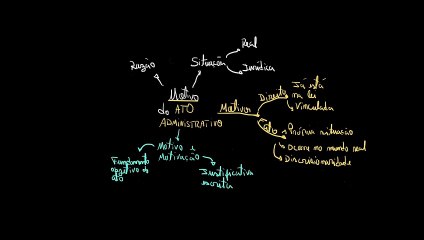 Real
Situação
Jurídica
Razão
Motivo
do ATO
ADMINISTRATIVO
Motivos
Direito
Já está
na lei
Vinculada
Fato
Própria situação
Ocorre no mundo real
Discricionariedade
Motivo e
Motivação
Fundamento
objetivo do
ato
Justificativa
escrita